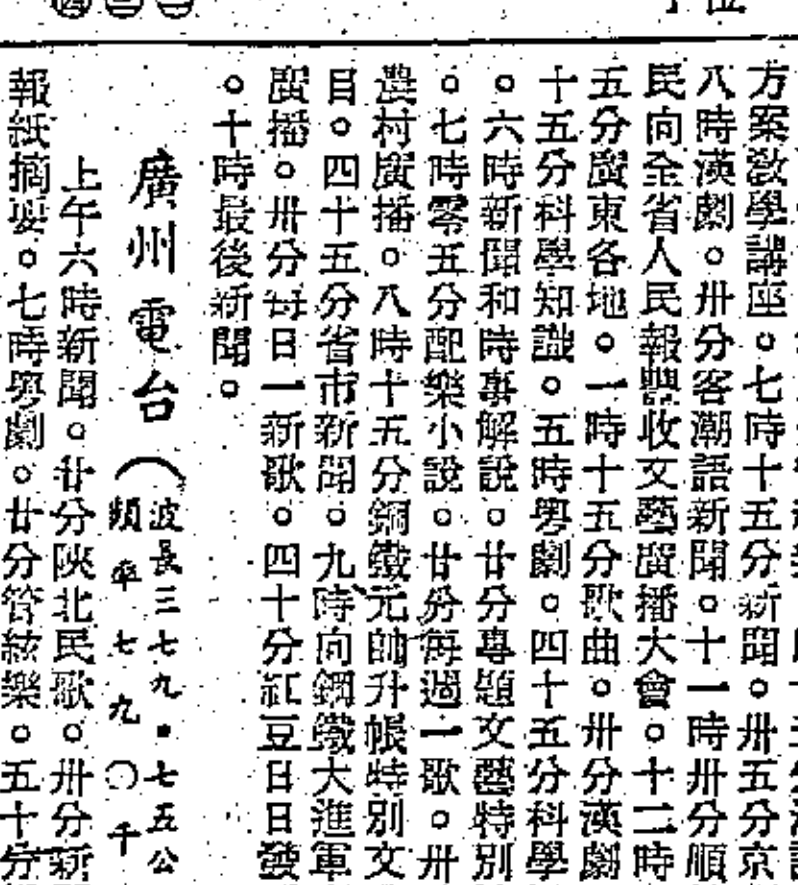 方案敎學講座。七時十五分新聞。卅五分京
八時漢劇。卅分客潮語新聞。十一時卅分順
民向全省人民報豐收文藝廣播大會。十二時
五分廣東各地。一時十五分歌曲。卅分漢劇
十五分科學知識。五時粤劇。四十五分科學
。六時新聞和時事解說。廿分專題文藝特別
。七時零五分配樂小說。廿分每週一歌。卅
農村廣播。八時十五分鋼鐵元帥升帳特別文
目。四十五分省市新聞。九時向鋼鐵大進軍
廣播。卅分每日一新歌。四十分紅豆日日發
。十時最後新聞。
廣州電台（波長三七九·七五公
頻率七九〇千
上午六時新聞。廿分陝北民歌。卅分新
報紙摘要。七時粤劇。廿分管絃樂。五十分